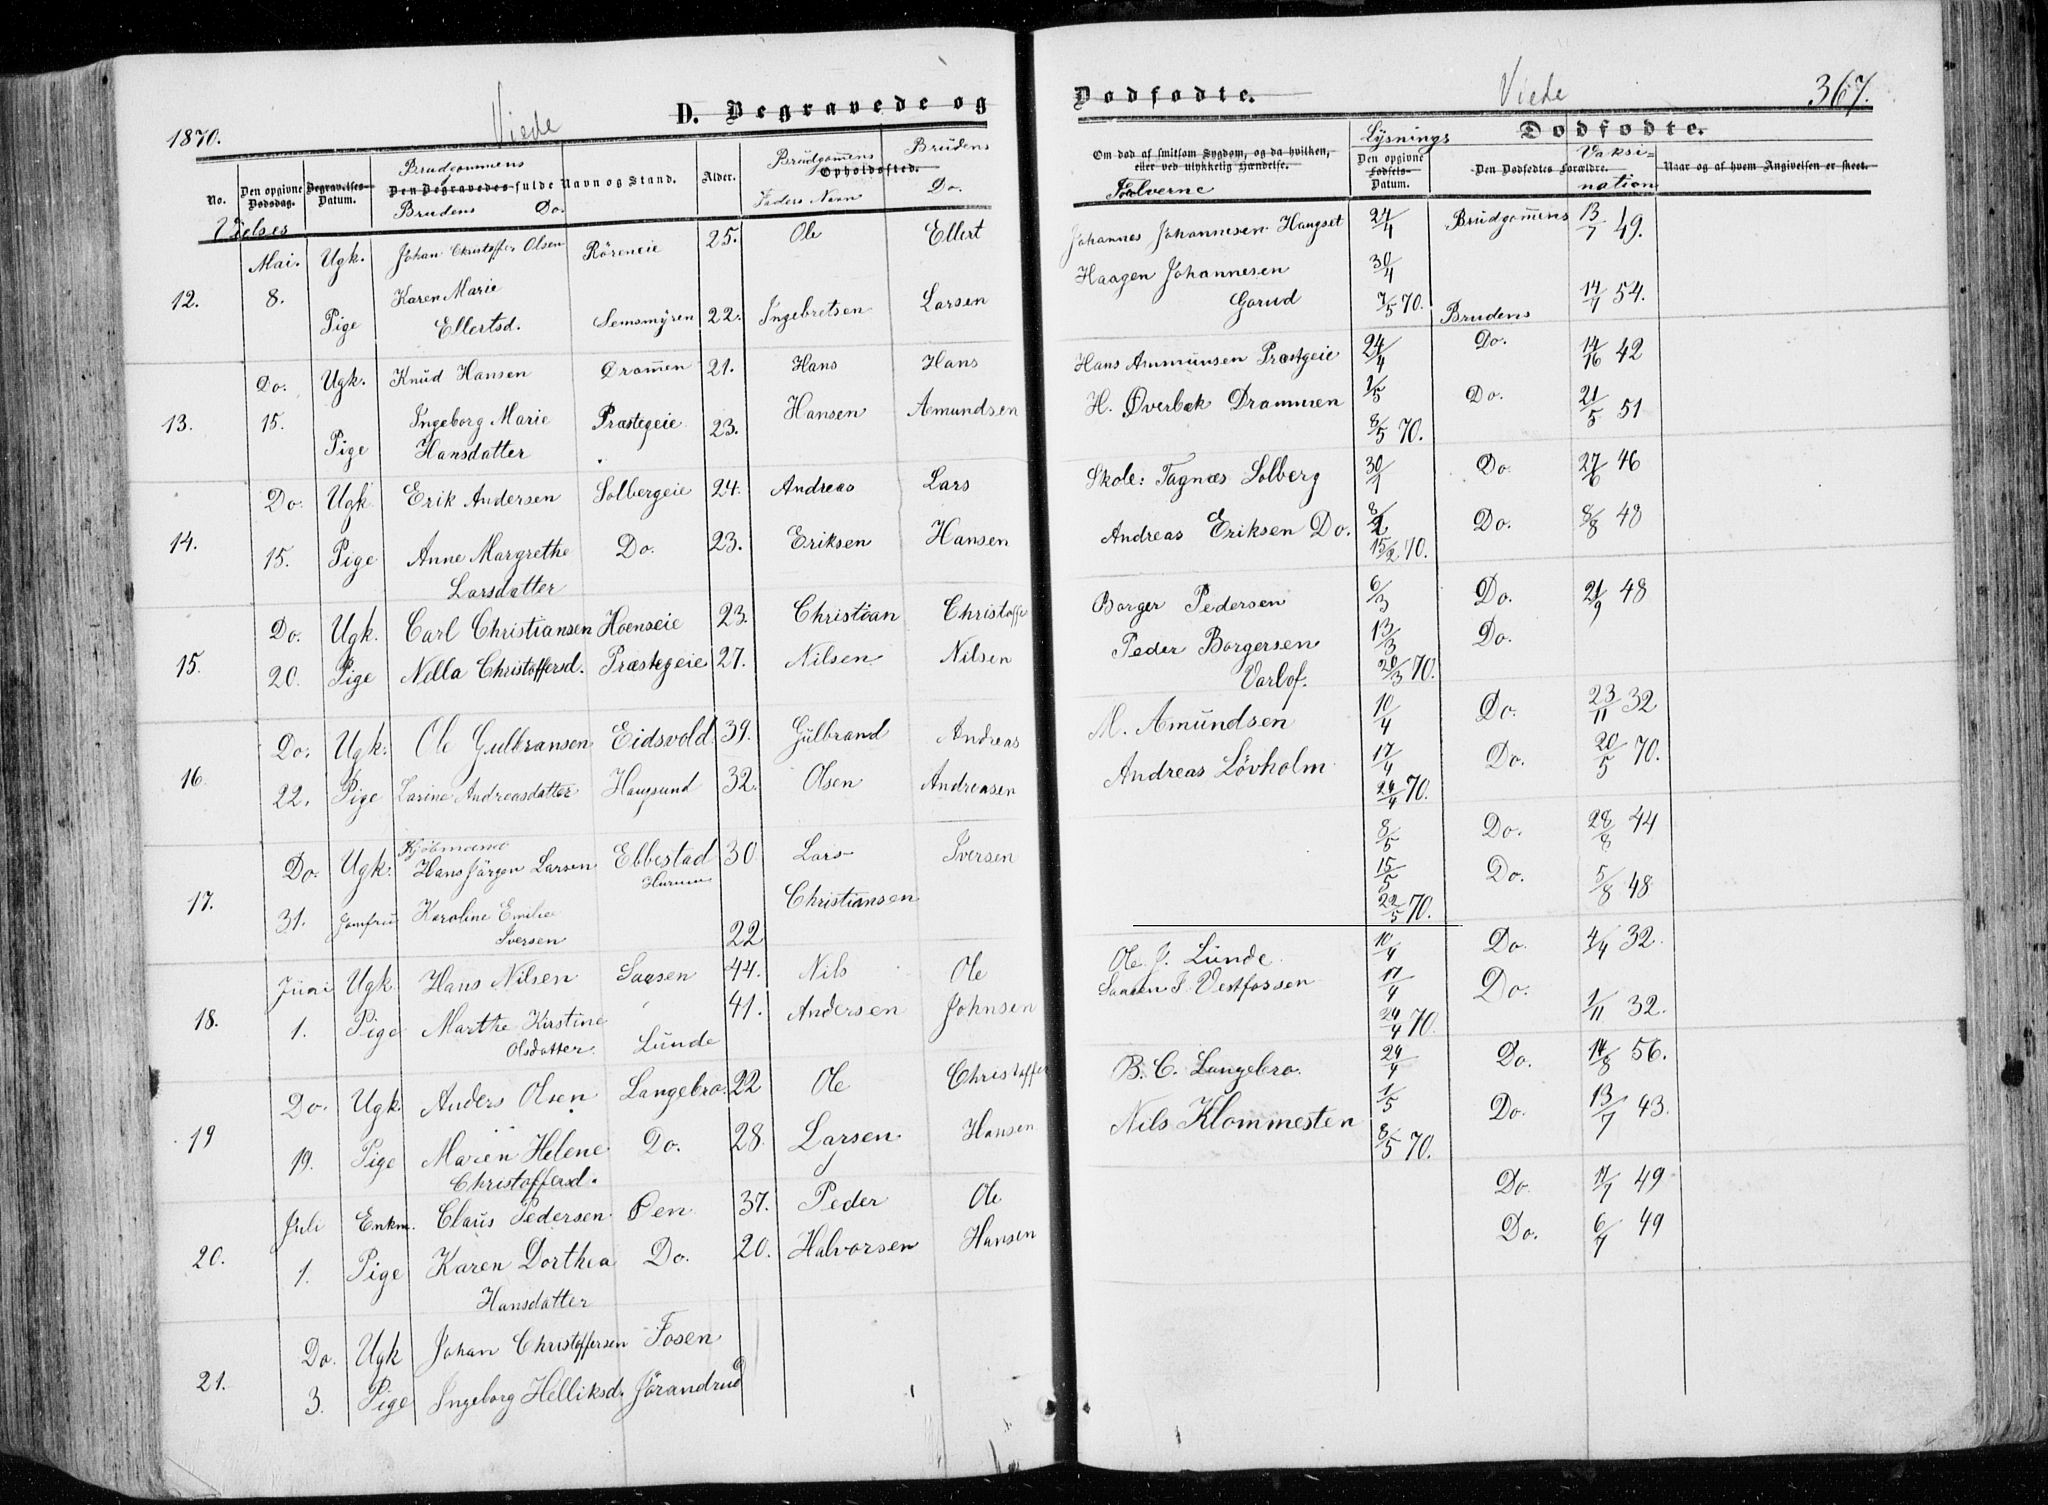 1870. Viede D. Begravede og
No. Den opgivne Dødsdag. Begravelses-Datum. Brudgommens Den Begravedes fulde Navn og Stand. Brudens Do. Alder. Brudgomens Opholdssted. Brudens
Faders Navn Do.
Mai. Ugk. Johan Christoffer Olsen Röreneie 25. Ole Ellert
12. 8. Pige Karen Marie Ellertsd. Semsmÿren 22. Ingebretsen Larsen
Do. Ugk. Knud Hansen Dramen 21. Hans Hans
13. 15. Pige Ingeborg Marie Hansdatter Præstegeie 23. Hansen Amundsen
Do. Ugk. Erik Andersen Solbergeie 24. Andreas Lars
14. 15. Pige Anne Margrethe Larsdatter Do. 23. Eriksen Hansen
Do. Ugk. Carl Christiansen Hoenseie 23. Christian Christoffe
15. 20. Pige Nella Christoffersd. Præstegeie 27. Nilsen Nilsen
Do. Ugk. Ole Gulbransen Eidsvold 39. Gulbrand Andreas
16. 22. Pige Larine Andreasdatter Haugsund 32. Olsen Andreasen
Do. Ugk. Hans Jörgen Larsen Ebbestad Hurum 30 Lars Iversen
17. 31. Jomfru Karoline Emilie Iversen 22 Christiansen
Juni Ugk. Hans Nilsen Saasen 44. Nils Ole
18. 1. Pige Marthe Kirstine Olsdatter Lunde 41. Andersen Johnsen
Do. Ugk. Anders Olsen Langebro. 22 Ole Christoffer
19 19. Pige Maren Helene Christoffersd. Do. 28. Larsen Hansen
Juli Enkm. Claus Pedersen Öen 37. Peder Ole
20. 1. Pige Karen Dorthea Hansdatter Do. 20. Halvorsen Hansen
Do. Ugk Johan Christoffersen Fosen
21. 3. Pige Ingeborg Helliksd. Jörandrud
Dødfødte. Viede 367.
Lysnings Dødfødte.
Om død af smitsom Sygdom, og da hvilken, eller ved ulykkelig Hændelse. Den opgivne Fødsels-Datum. Den Dødfødtes Forældre. Vaksination Naar og af hvem Angivelsen er skeet.
Forloverne
Johannes Johannesen Haugset 24/4 Brudgomens 13/7 49.
Haagen Johannesen 30/4
Gorud 7/5 70. Brudens 14/7 54.
Hans Ammunsen Præstgeie 24/4 Do. 14/16 42
H. Øverbek Drammen 1/5 Do. 21/5 51
8/5 70.
Skole: Tagnæs Solberg 30/1 Do. 27/6 46
Andreas Eriksen Do. 8/2 Do. 8/8 48
15/2 70.
Borger Pedersen 6/3 Do. 21/9 48
Peder Borgersen 13/3 Do.
Varlof. 20/3 70.
M. Amundsen 10/4 Do. 23/11 32
Andreas Lövholm 17/4 Do. 20/5 70.
24/4 70.
8/5 Do. 28/8 44
15/5 Do. 5/8 48
22/5 70.
Ole J. Lunde. 10/4 Do. 4/4 32.
Saasen J. Vestfossen 17/4 Do. 1/11 32.
24/4 70.
B. C. Langebro. 24/4 Do. 14/8 56.
Nils Klommesten 1/5 Do. 13/7 43.
8/5 70.
Do. 17/7 49
Do. 6/7 49